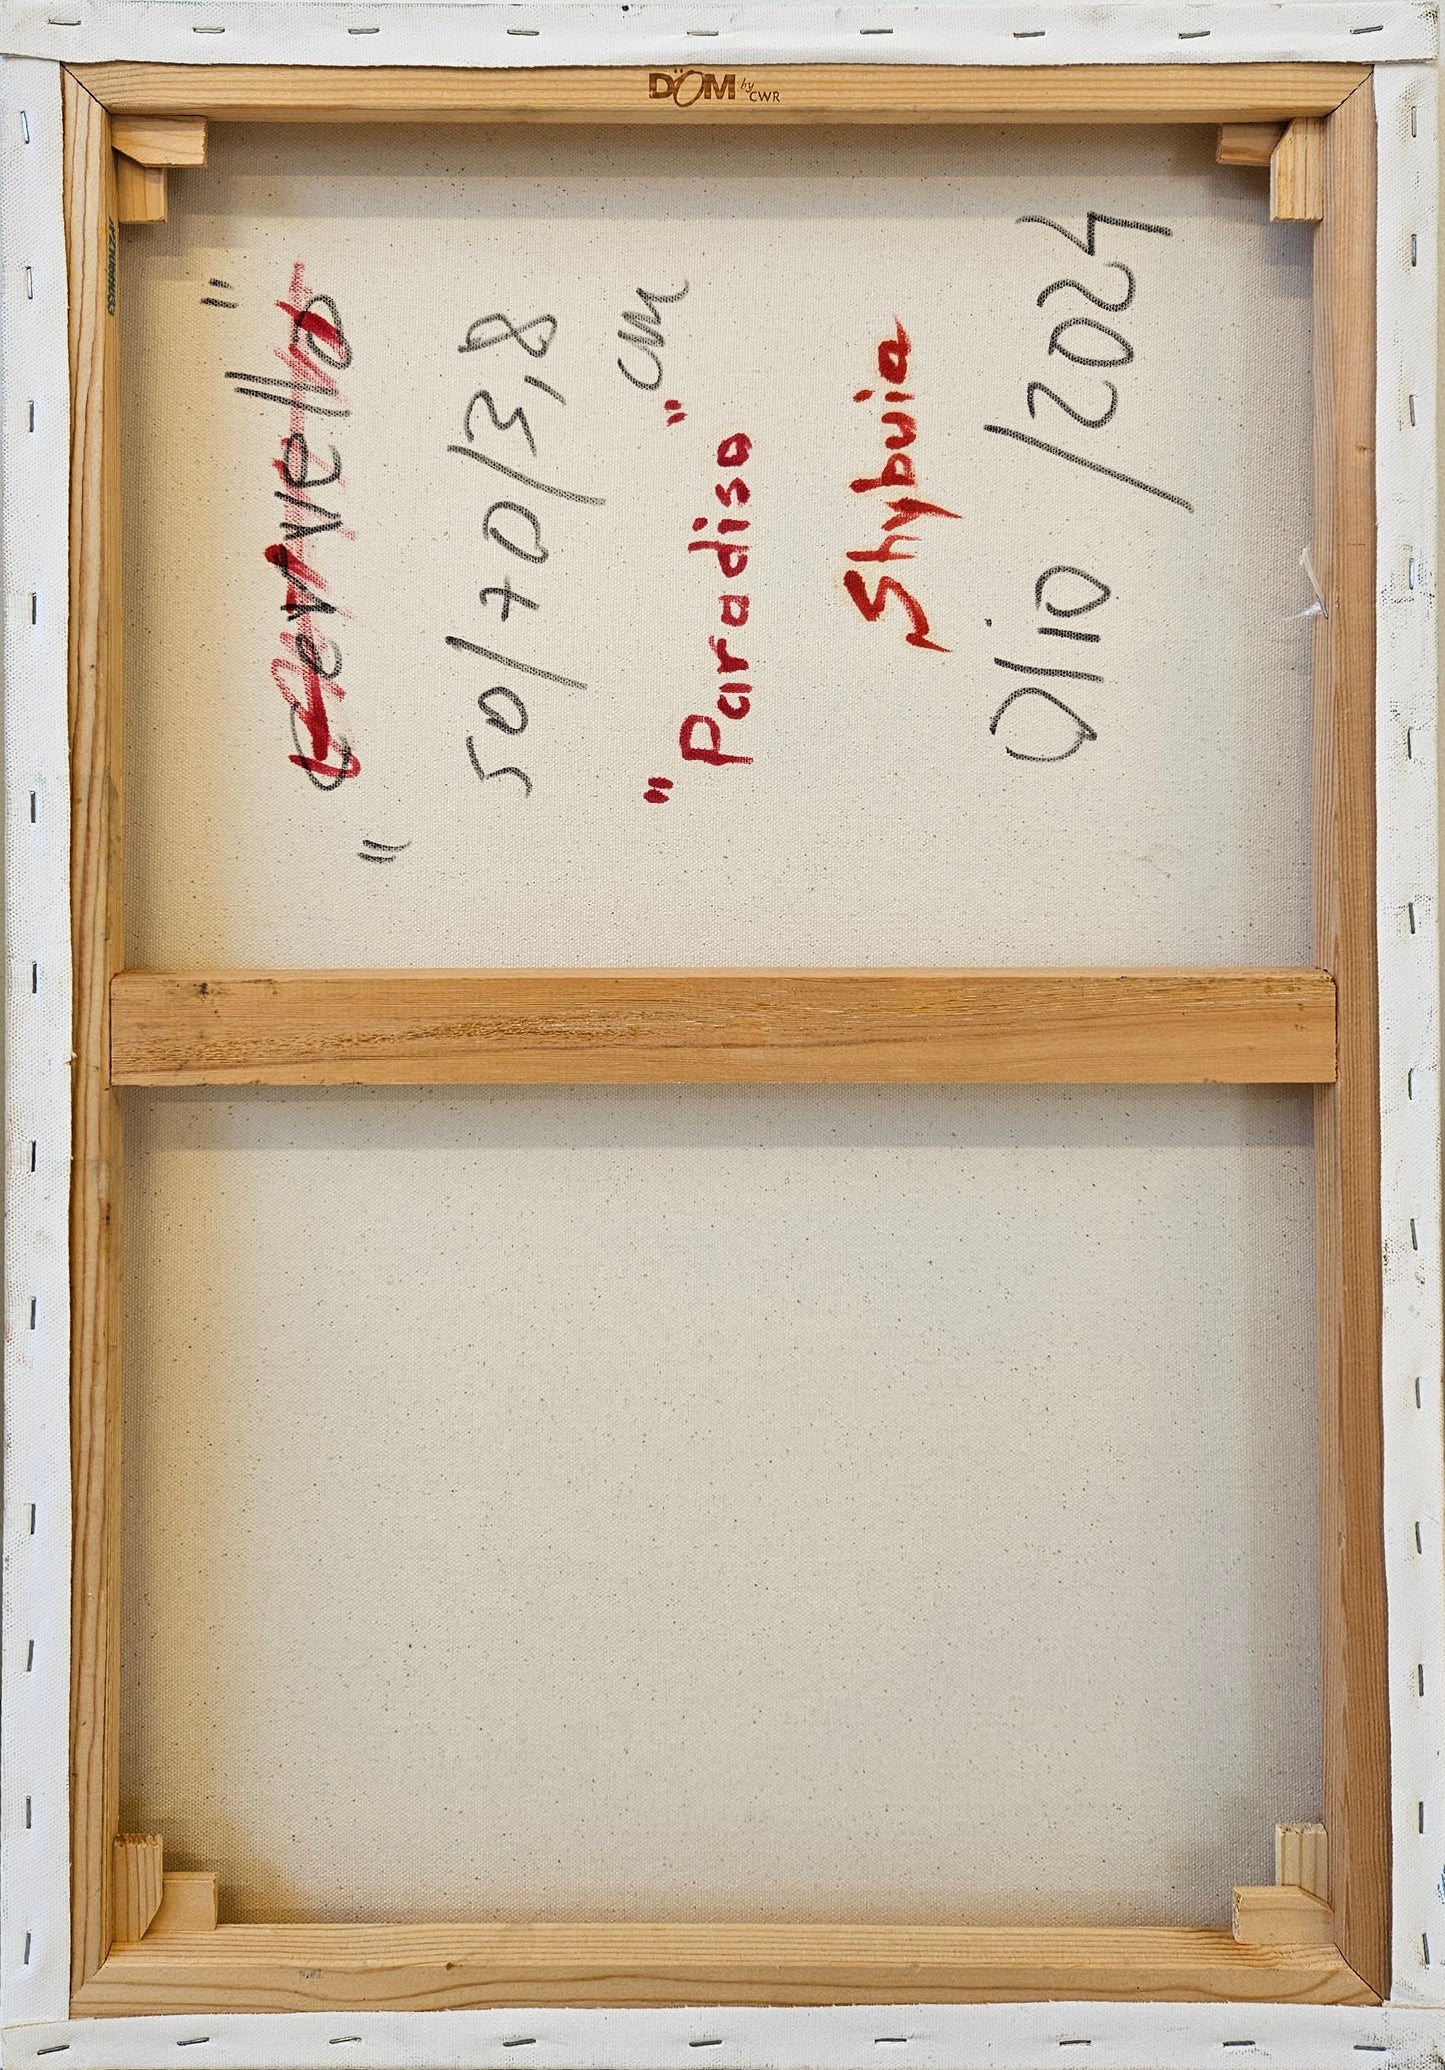 DÖM by CWR
"Cervello"
50/70/3,8
cm
"Paradiso"
Shybuia
Olio /2024